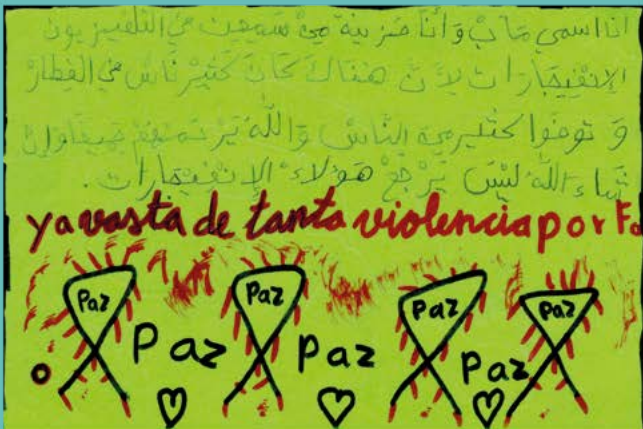 انا اسمي وَأَنَا حَزينة سَمِعت في التلفيزيون
الإنفيجَارات لِأَنَّ هنَاكَ كَانَ كَثيرْ نَاسْ في القِطارْ
وَ توفوا كثير مِن النَاسْ وَ اللَّه يَرْحَمهُمْ جَميعًا وإن
شَاءَ اللَّه لَيْسَ يَرْجَعْ هَؤلاءْ الإنْفيجارات.
ya vasta de tanta violencia por Fa
Paz Paz Paz Paz
Paz Paz Paz